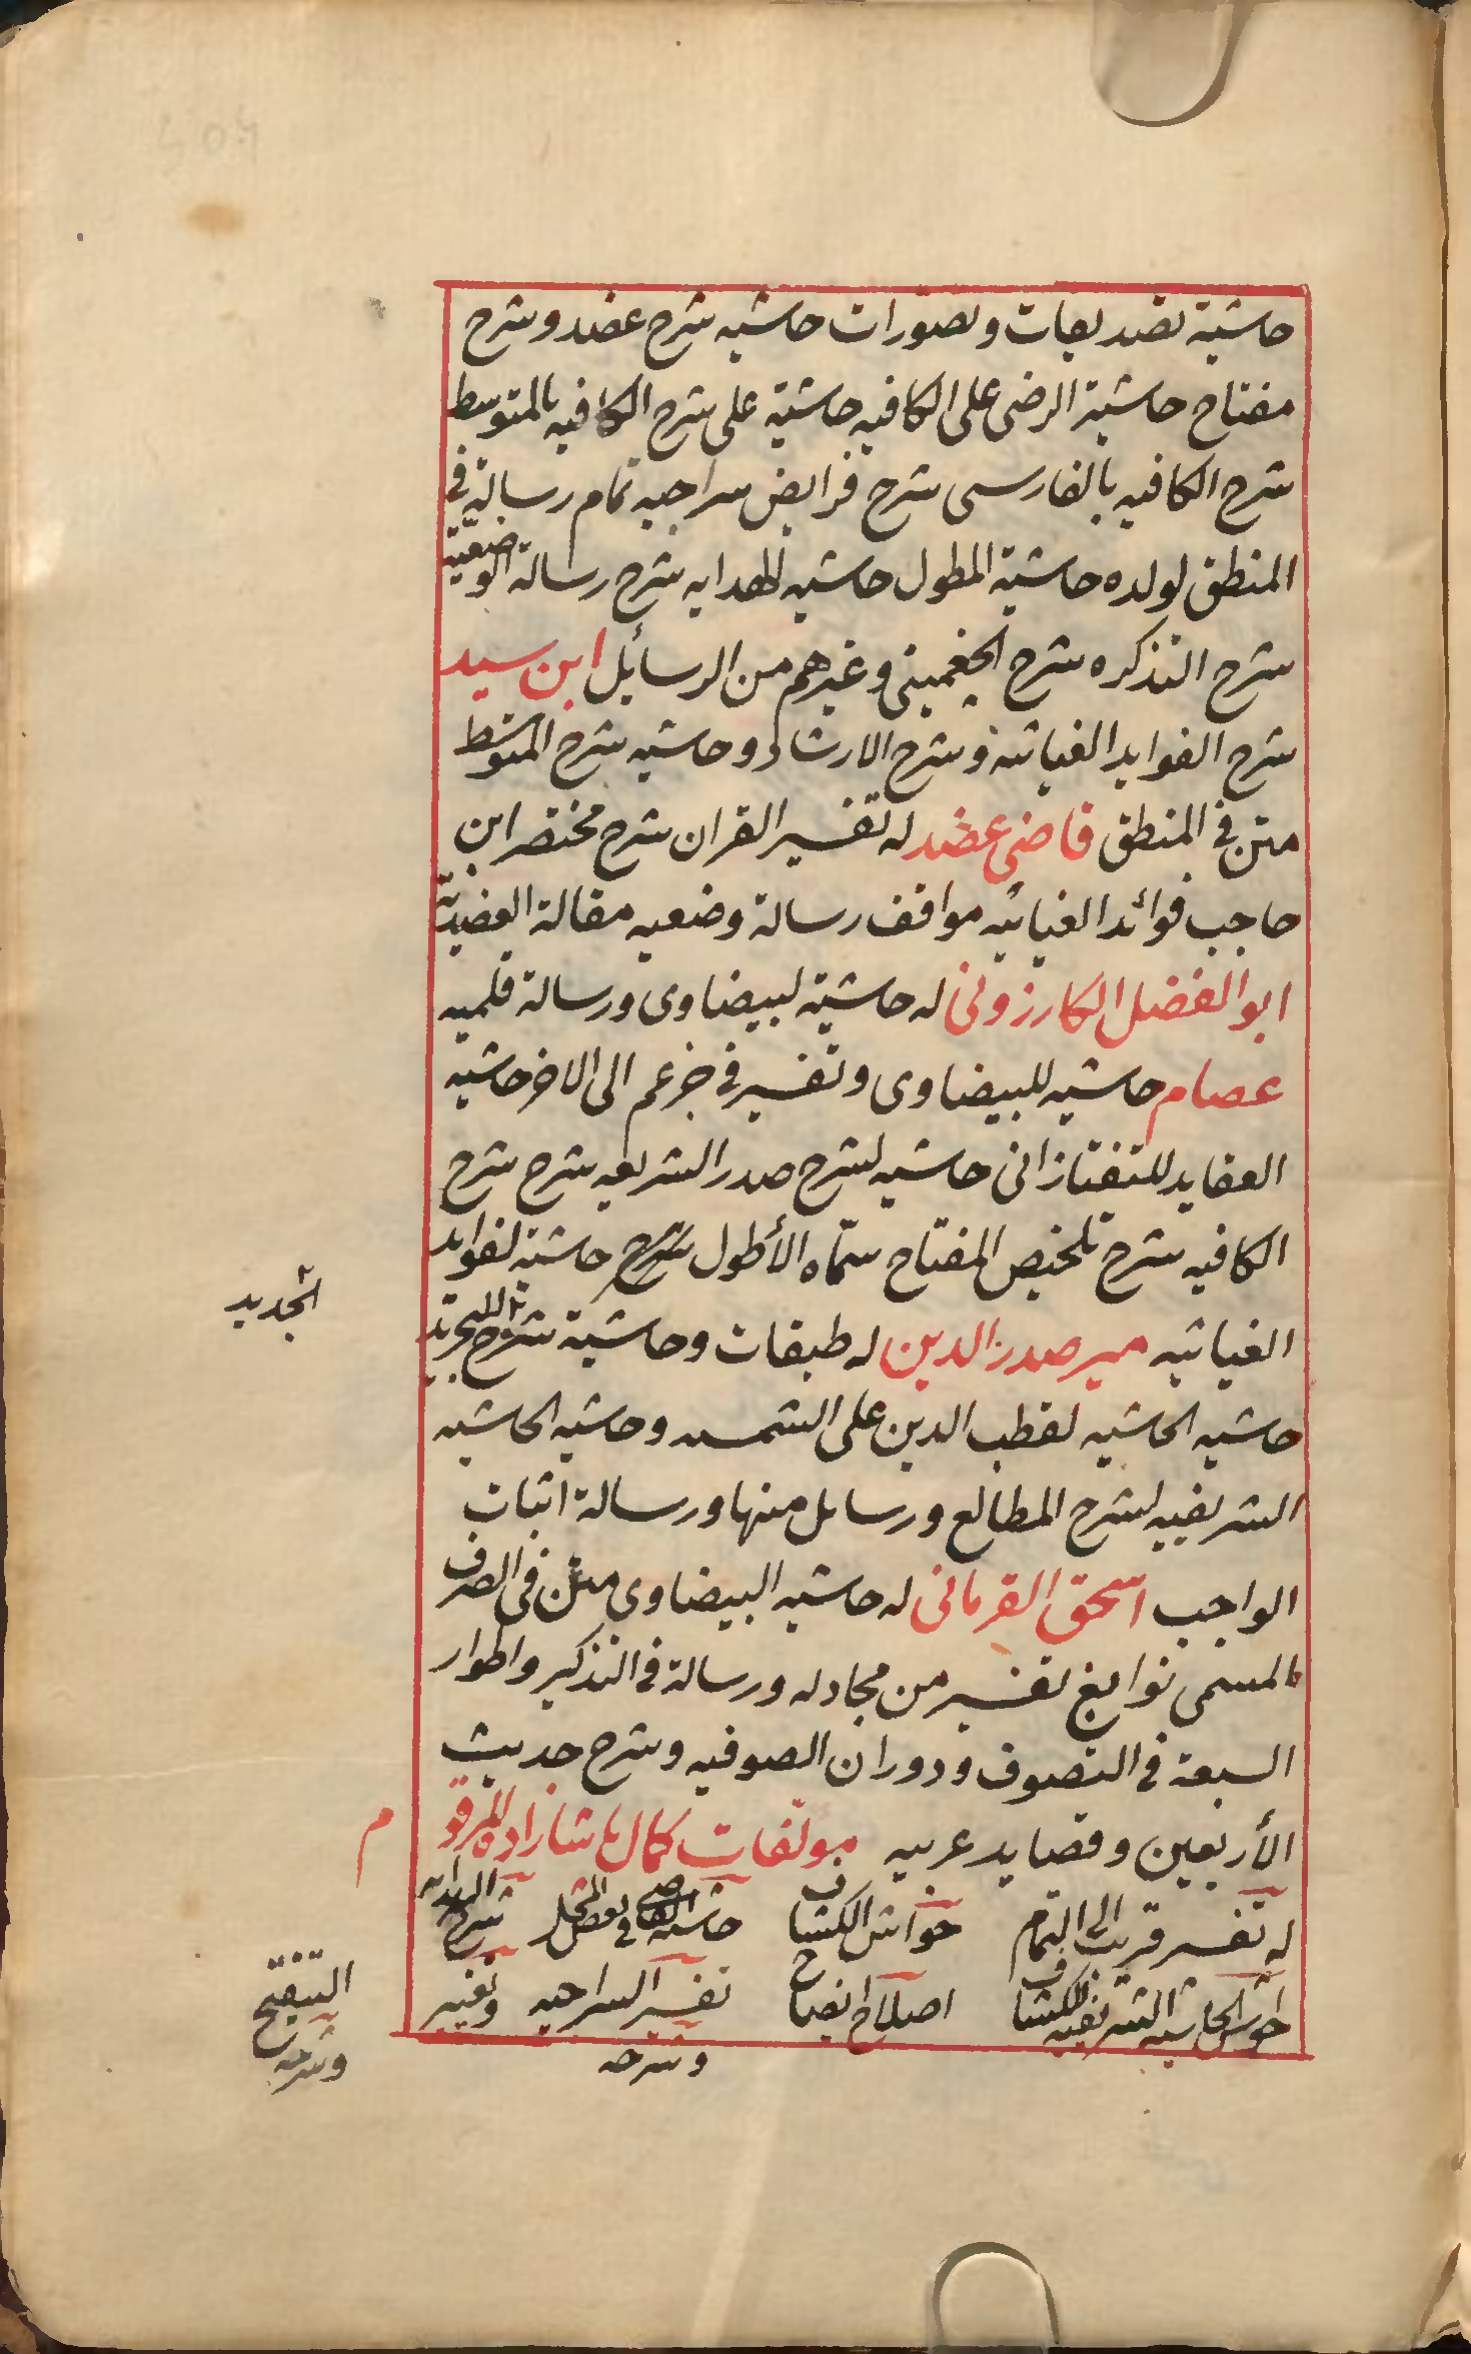 حاشية تصديقات وتصورات حاشيه شرح عضد وشرح
مفتاح حاشية الرضى على الكافيه حاشية على شرح الكافيه بالمتوسط
شرح الكافيه بالفارسى شرح فرايض سراجيه تمام رسالة فى
المنطق لولده حاشية المطول حاشيه للهدايه شرح رسالة الوضعية
شرح التذكره شرح الجغمينى وغيرهم من الرسائل ابن سيد
شرح الفوايد الغياثيه وشرح الارشاد وحاشيه شرح المتوسط
متن فى المنطق قاضى عضد له تفسير القران شرح مختصر ابن
حاجب فوائد الغياثيه مواقف رسالة وضعيه مقالة العضدية
ابو الفضل الكارزونى له حاشية لبيضاوى ورسالة قلميه
عصام حاشيه للبيضاوى وتفسير فى جزء عم الى الاخر حاشيه
العقايد للتفتازانى حاشيه لشرح صدر الشريعه شرح شرح
الكافيه شرح تلخيص المفتاح سماه الأطول شرح حاشية لفوايد
الغياثيه مير صدر الدين له طبقات وحاشية شرح التجريد
الجديد
حاشيه الحاشيه لقطب الدين على الشمسه وحاشيه الحاشيه
الشريفيه لشرح المطالع ورسايل منها ورسالة اثبات
الواجب اسحق القرمانى له حاشيه البيضاوى متن فى الصرف
المسمى نوابغ تفسير من مجادله ورسالة فى التذكير واطوار
السبعة فى التصوف ودوران الصوفيه وشرح حديث
الأربعين وقصايد عربيه مولفات كمال پاشا زاده للمرقوم
له تفسير قريب الى التمام حواش الكشاف حاشيه القاضى فى بعض المحل شرح الهدايه
حواش الحاشيه الشريفيه للكشاف اصلاح ايضاح تفسير السراجيه وشرحه وتغيير
التنقيح وشرحه